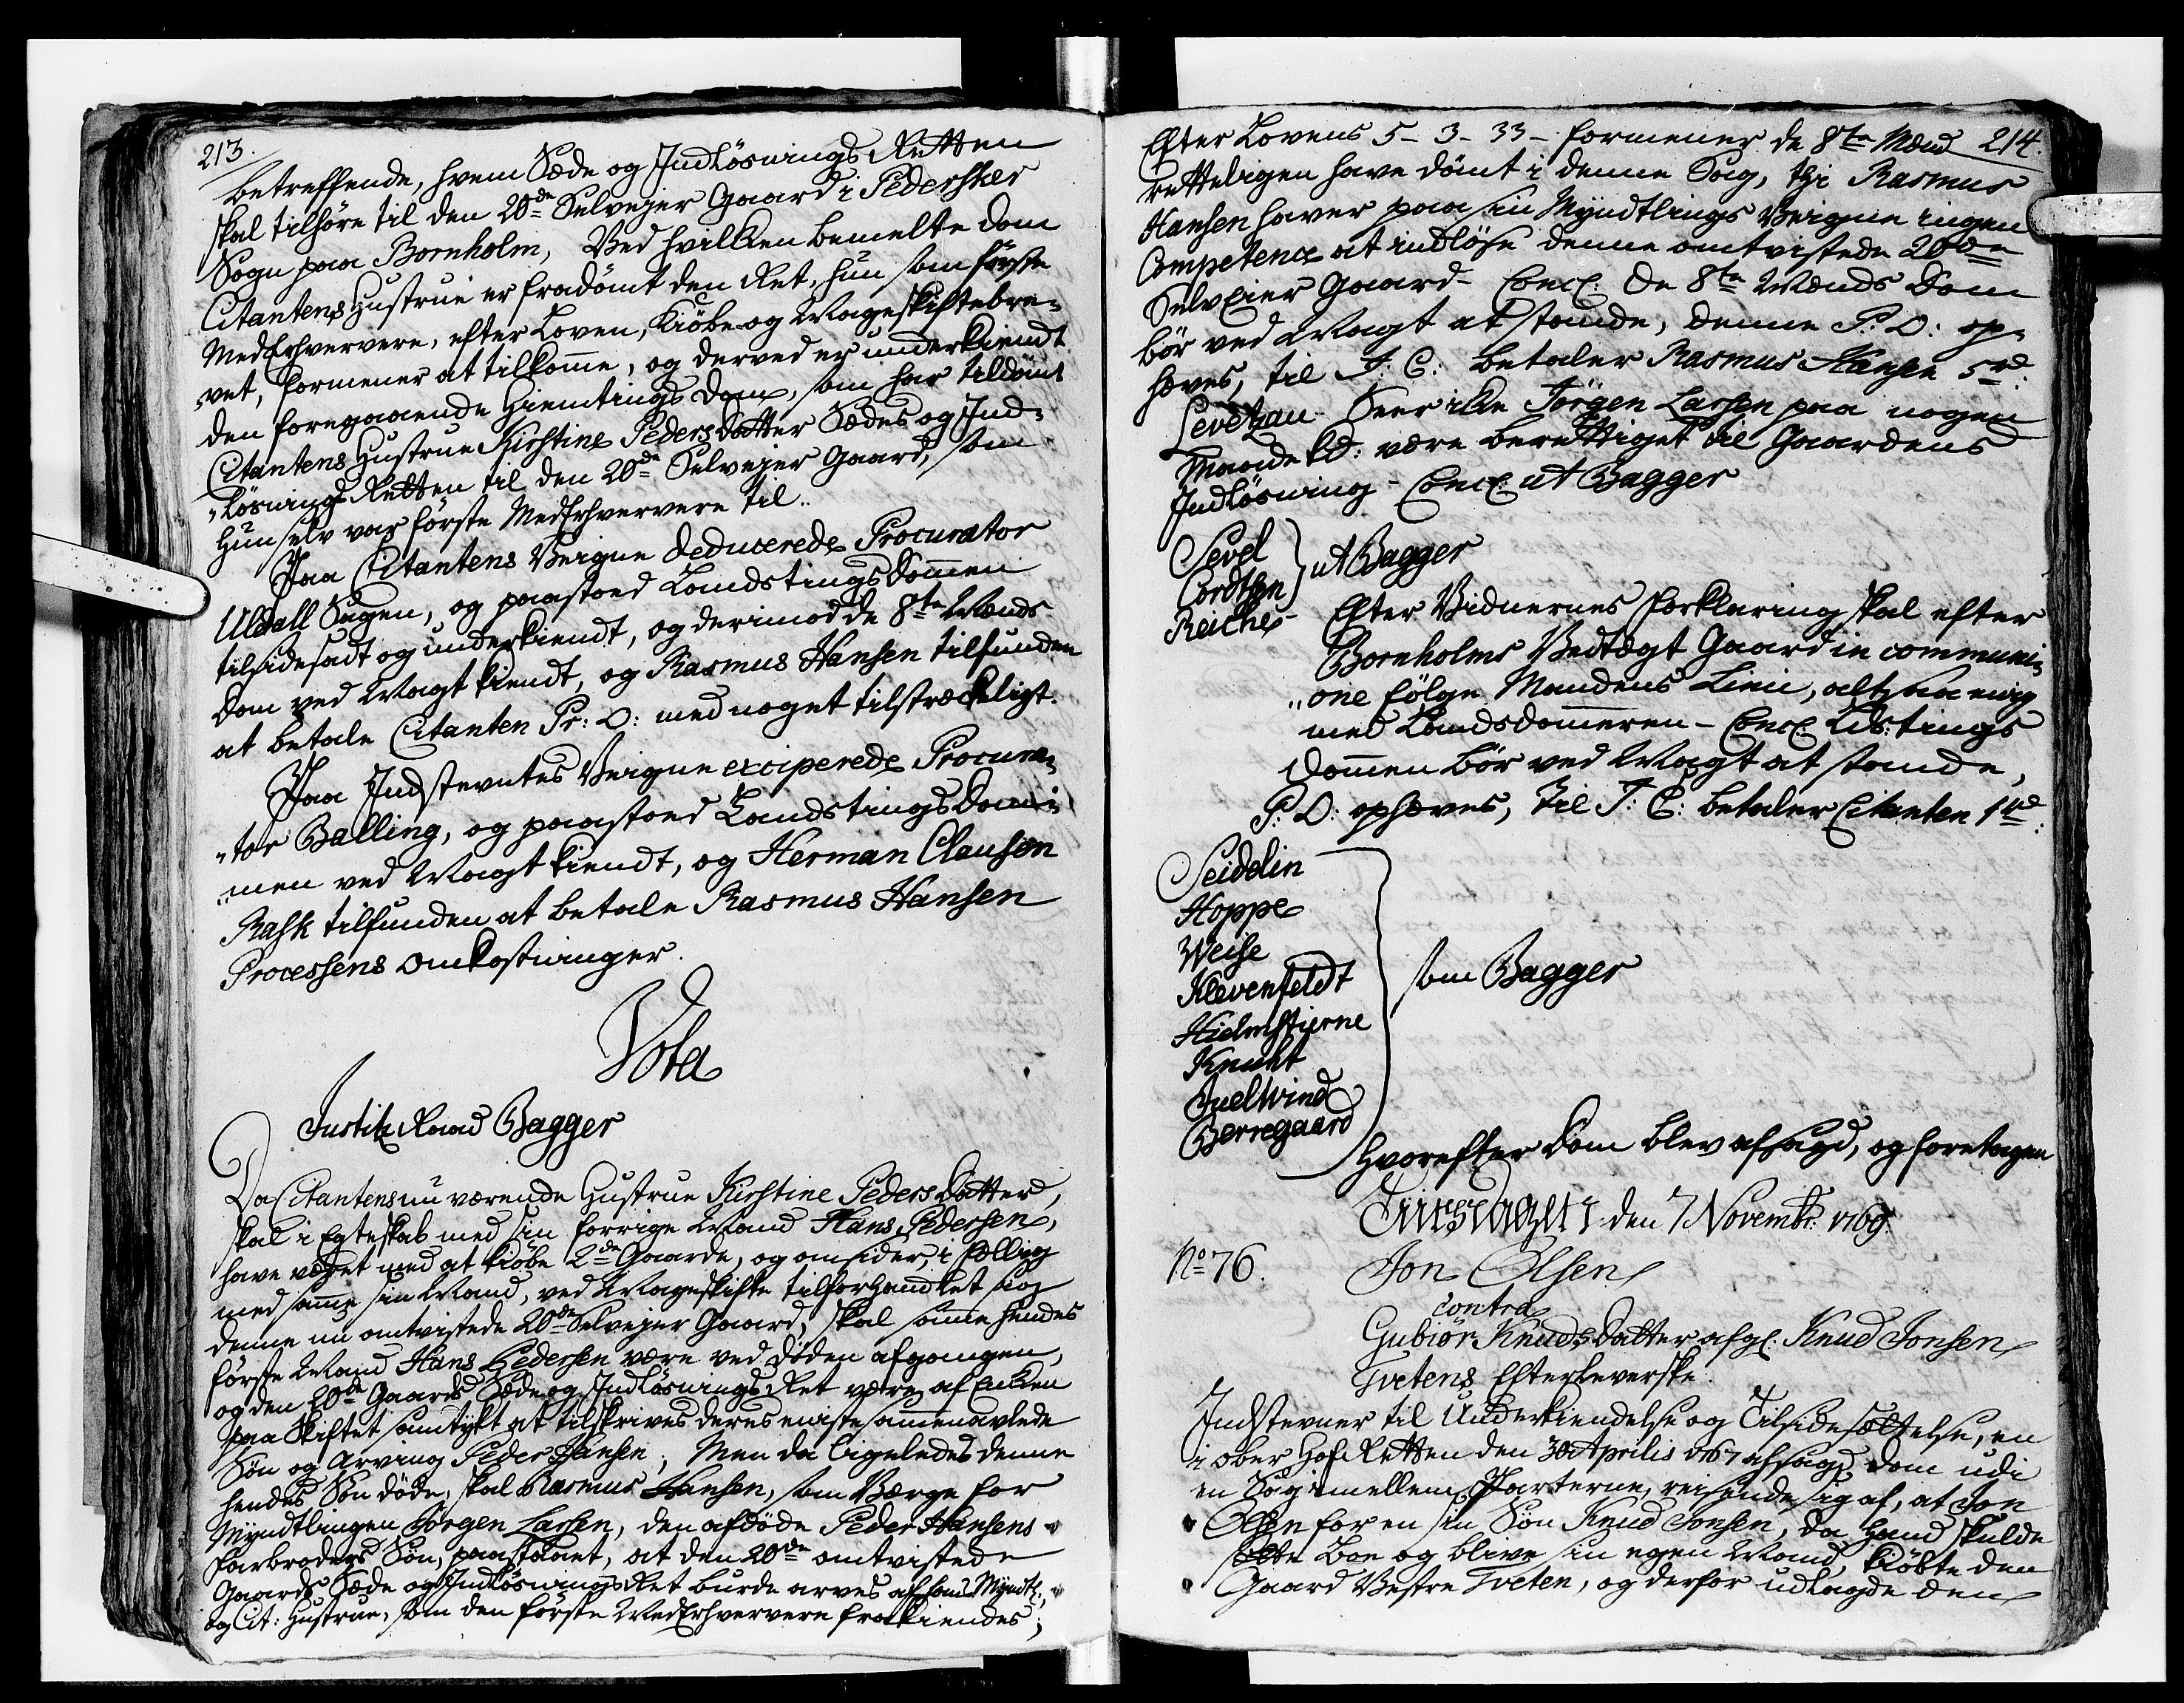 213.
betreffende, hvem Sæde og Indlösnings Retten
skal tilhöre til den 20de Selvejer Gaard i Pedersker
Sogn paa Bornholm, Ved hvilken bemelte Dom
Citantens Hustrue er fradömt den Ret, hun som förste
MedErhververe, efter Loven, Kiöbe og Mageskiftebre-
vet, formener at tilkomme, og derved er underkiendt
den foregaaende Hiemtings Dom, som har tildömt
Citantens Hustrue Kirstine Peders datter Sædes og Ind-
lösnings Retten til den 20de Selvejer Gaard, som
Hun selv var förste MedErhververe til.
Paa Citantens Veigne deducerede Procurator
Uldall Sagen, og paastoed Landstings Dommen
tilsidesadt og underkiendt, og derimod de 8te Mænds
Dom ved Magt kiendt, og Rasmus Hansen tilfunden
at betale Citanten Pr: O: med noget tilstrækeligt.
Paa Indstevntes Veigne exciperede Procura-
tor Balling, og paastoed Landstings Dom-
men ved Magt kiendt, og Herman Clausen
Rask tilfunden at betale Rasmus Hansen
Processens Omkostninger.
Vota
Justitz Raad Bagger
Da Citantens nu værende Hustrue Kirstine Peders Datter,
skal i Egteskab med sin forrige Mand Hans Pedersen,
have været med at kiöbe 2de Gaarde, og omsider, i fællig
med samme sin Mand, ved Mageskifte tilforhandlet sig
denne nu omtvistede 20de Selvejer Gaard, skal samme hendes
förste Mand Hans Pedersen være ved Döden afgangen,
og den 20de Gaards Sæde og Indlösnings Ret være af Enken
paa Skiftet samtykt at tilskrives deres eniste sammenavlede
Sön og Arving Peder Hansen; Men da ligeledes denne
hendes Sön döde, skal Rasmus Hansen, som Værge for
Myndtlingen Jörgen Larsen, den afdöde Peder Hansens
Farbroders Sön, paastaaet, at den 20de omtvistede
Gaards Sæde og Indlösnings Ret burde arves af hans Myndtl:,
og Cit: Hustrue, som den förste MedErhververe frakiendes;
214.
Efter Lovens 5-3-33- formener de 8te Mænd
retteligen have dömt i denne Sag, thi Rasmus
Hansen haver paa sin Myndtlings Veigne ingen
Competence at indlöse denne omtvistede 20de
SelvEier Gaard - Concl: De 8te Mænds Dom
bör ved Magt at stande, denne P: O: op-
hæves, til J: C: betaler Rasmus Hansen 5 rd:
Levetzau - Seer ikke Jörgen Larsen paa nogen
Maade kd: være berettiget til Gaardens
Indlösning - Concl: ut Bagger
Sevel
Cordtsen
ut Bagger
Reiche - Efter Vidnernes Forklaring skal efter
Bornholms Vedtægt Gaard in communi-
one fölge Mandens Linie, altsaa enig
med Landsdommeren - Concl: Lds:tings
Dommen bör ved Magt at stande,
P: O: ophæves, til J: C: betaler Citanten 1 rd:
Seidelin
Hoppe
Weise
Klevenfeldt
Hielmstierne
Knuht
JuelWind
Berregaard
som Bagger
Hvorefter Dom blev afsagd, og foretagen
Tiirsdagen den 7 Novembr: 1769.
No 76.
Jon Olsen
contra
Gubiör Knuds Datter afgl: Knud Jonsen
Tvetens Efterleverske.
Indstevner til Underkiendelse og Tilsidesættelse, en
i Ober Hof Retten den 30 Aprilis 1767 afsagd Dom udi
en Sag imellem Parterne, reisende sig af, at Jon
Olsen for en sin Sön Knud Jonsen, da Hand skulde
sætte Boe og blive sin egen Mand, kiöbte den
Gaard Vestre Tveten, og derfor udlagde den